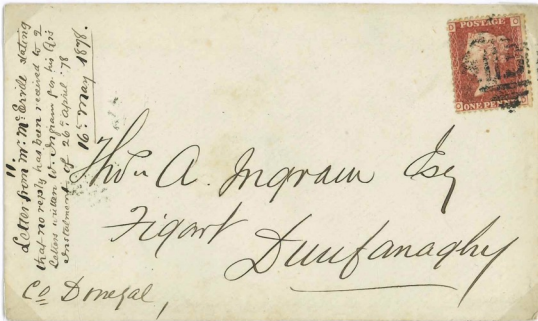 11.
Letter from Mr. McErvile stating
that no reply has been received to 2
Letters written to Ingram for his
Instalment of 26th April '78
16th May 1878.
POSTAGE
ONE PENNY
A. Ingram Esq
Figart
Dunfanaghy
Co Donegal,